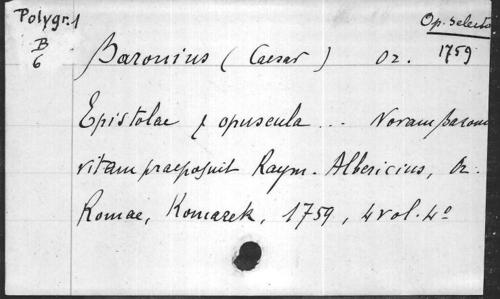 Polygr. 1
B
6
Op. selecta
1759
Baronius (Caesar) Or.
Epistolae & opuscula ... Novam baron
vitam praeposuit Raym. Albericius, Or.
Romae, Komarek, 1759, 4 vol. 4º